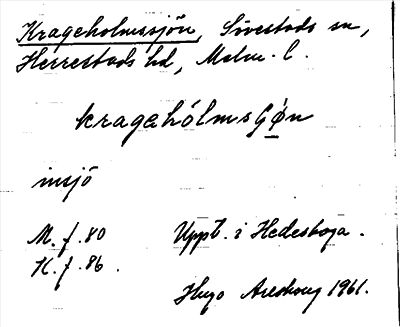 Krageholmssjön, Sövestads sn,
Herrestads hd, Malm. l.
krageholmsʃøn
insjö
M. f. 80 Uppt. i Hedeskoga.
K. f. 86.
Hugo Areskoug 1961.